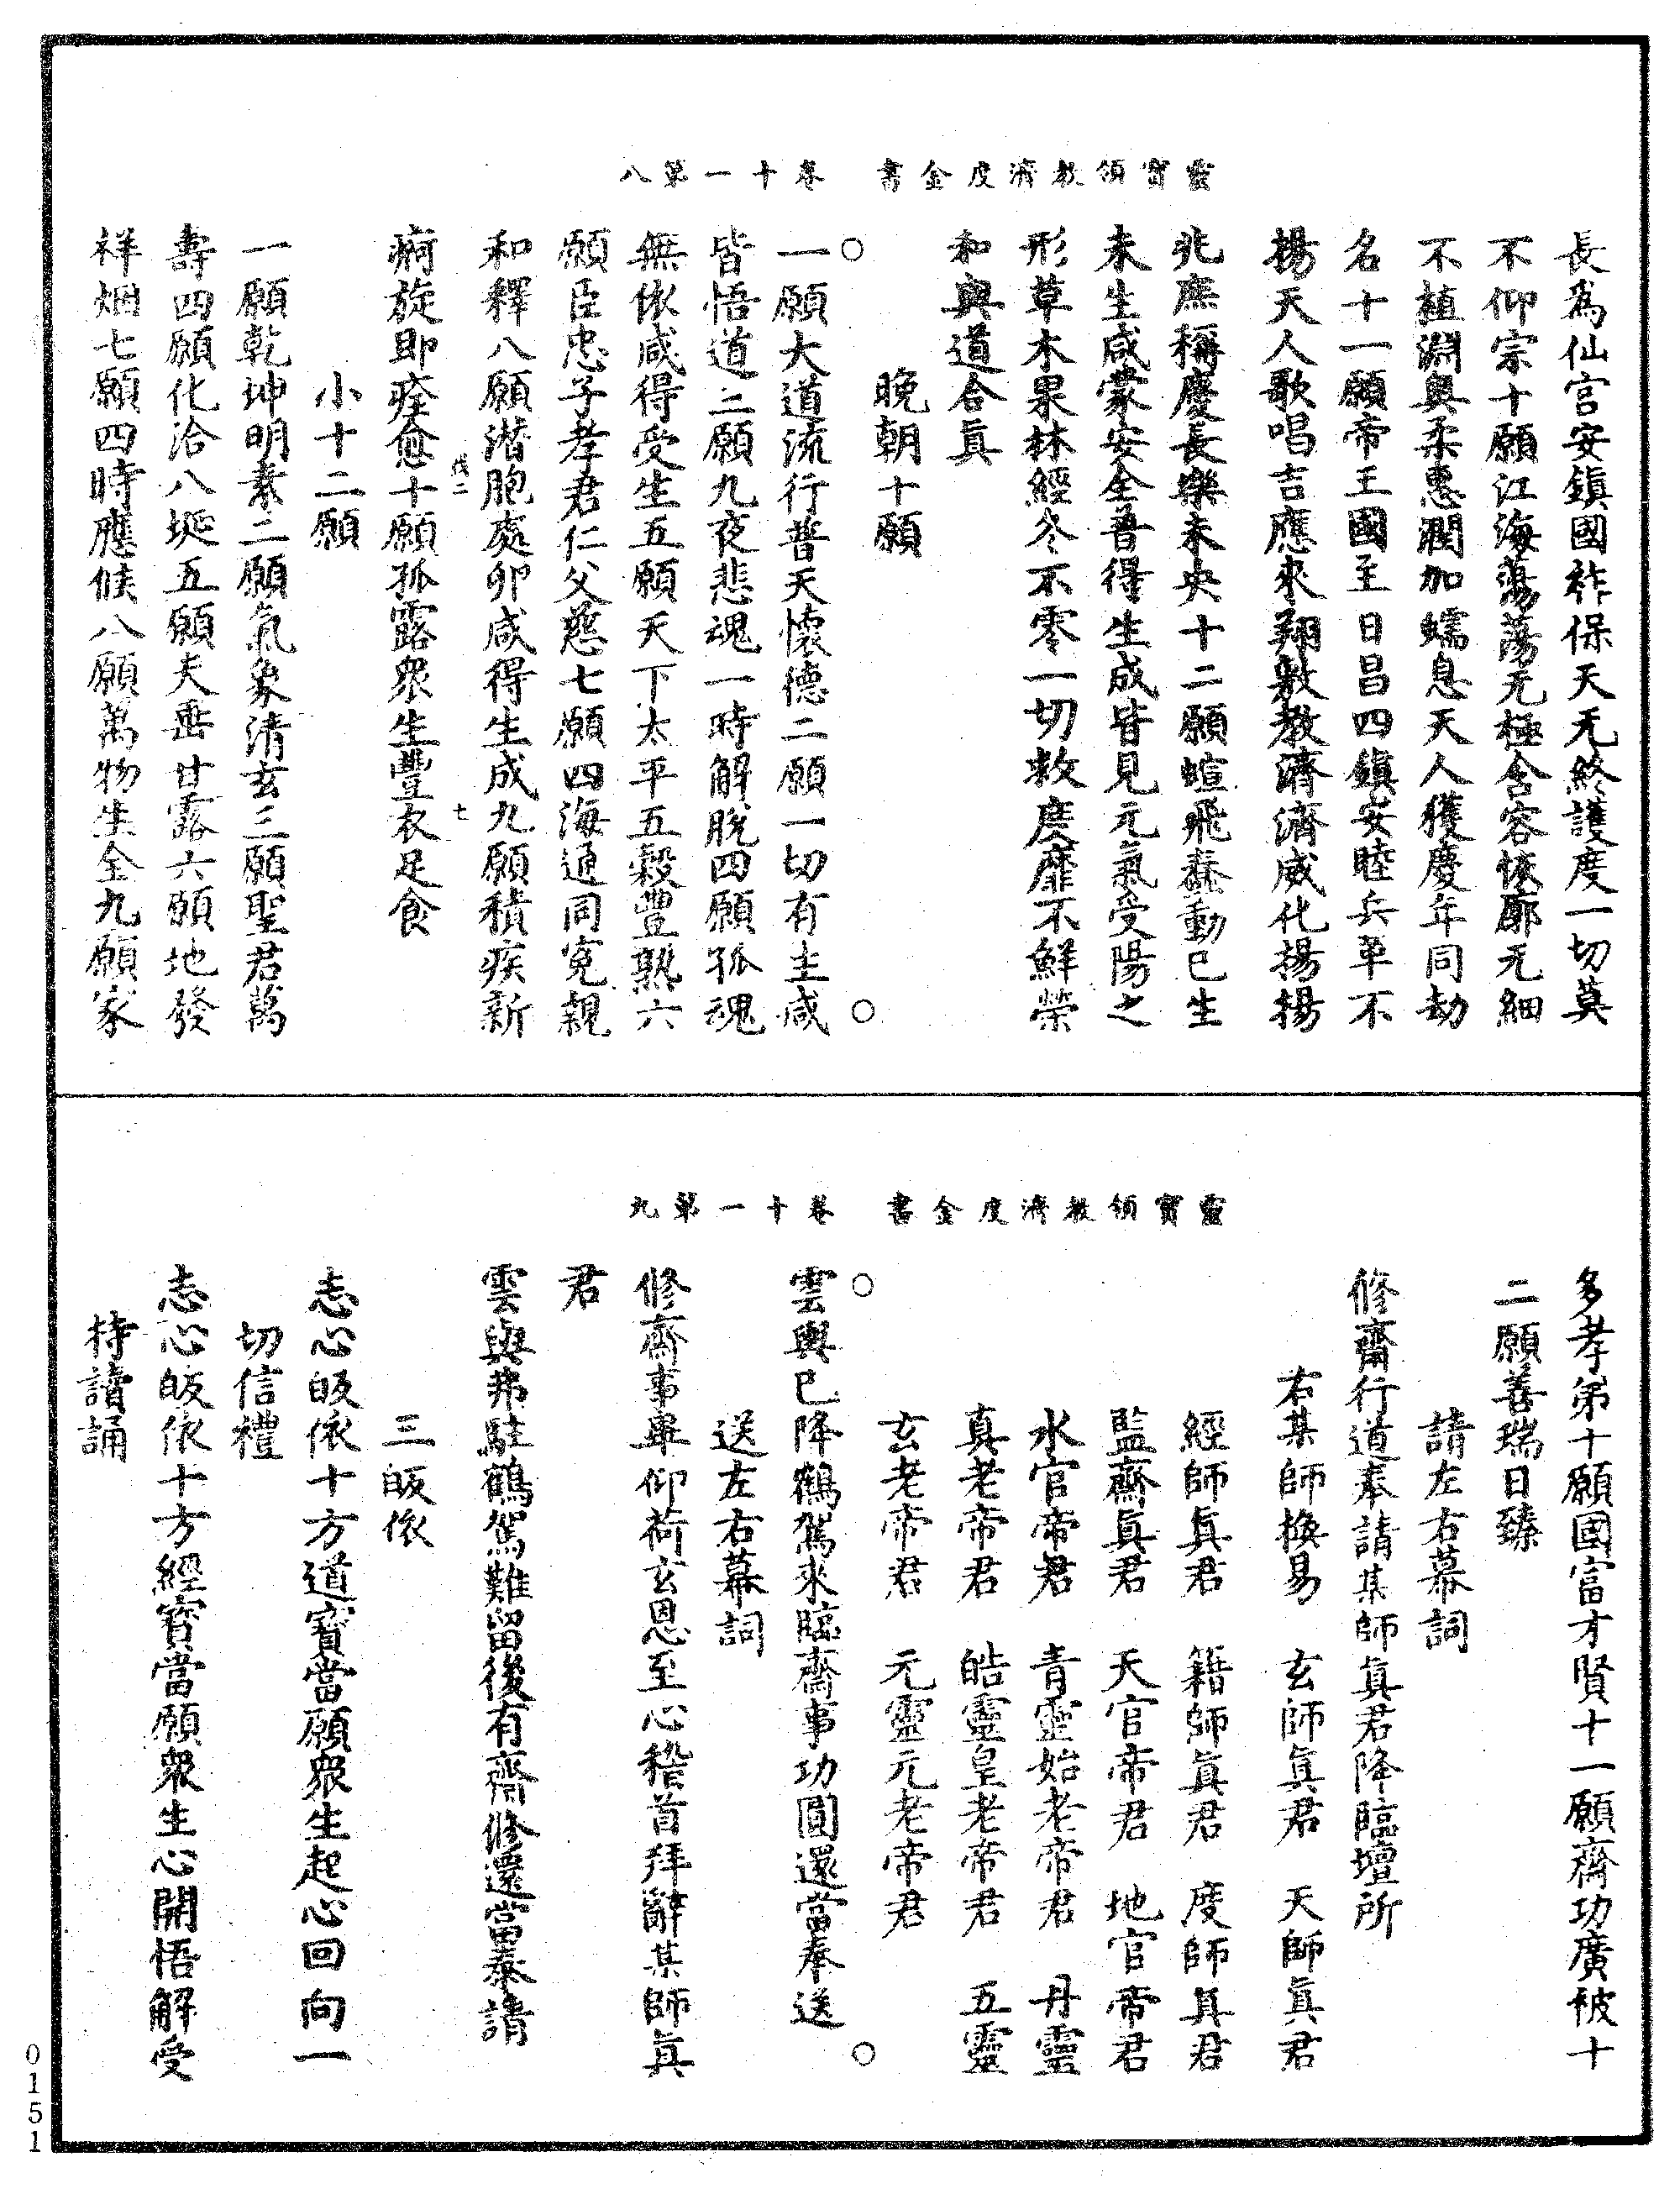 靈寶領教濟度金書　卷十一第八
長爲仙官安鎮國祚保天无終護度一切莫
不仰宗十願江海蕩蕩无極含容恢廓无細
不植淵輿柔惠潤加蠕息天人獲慶年同劫
名十一願帝王國至日昌四鎮安睦兵革不
揚天人歌唱吉應來翔敷教濟濟威化揚揚
兆庶稱慶長樂未央十二願蝖飛蠢動已生
未生咸蒙安全普得生成皆見元氣受陽之
形草木果林經冬不零一切救度靡不鮮榮
和與道合眞
晚朝十願
一願大道流行普天懷德二願一切有生咸
皆悟道二願九夜悲魂一時解脫四願孤魂
無依咸得受生五願天下太平五穀豐熟六
願臣忠子孝君仁父慈七願四海通同寃親
和釋八願潛胞處卵咸得生成九願積疾新
伐二　七
痾旋即痊愈十願孤露衆生豐衣足食
小十二願
一願乾坤明素二願氣象清玄三願聖君萬
壽四願化洽八埏五願天垂甘露六願地發
祥烟七願四時應候八願萬物生全九願家
靈寶領教濟度金書　卷十一第九
多孝弟十願國富才賢十一願齋功廣被十
二願善瑞日臻
請左右幕詞
修齋行道奉請某師眞君降臨壇所
右某師換易　玄師眞君　天師眞君
經師眞君　籍師眞君　度師眞君
監齋眞君　天官帝君　地官帝君
水官帝君　青靈始老帝君　丹靈
真老帝君　皓靈皇老帝君　五靈
玄老帝君　元靈元老帝君
雲輿已降鶴駕來臨齋事功圓還當奉送
送左右幕詞
修齋事畢仰荷玄恩至心稽首拜辭某師眞
君
雲輿弗駐鶴駕難留後有齋修還當奉請
三皈依
志心皈依十方道寶當願衆生起心回向一
切信禮
志心皈依十方經寶當願衆生心開悟解受
持讀誦
0151